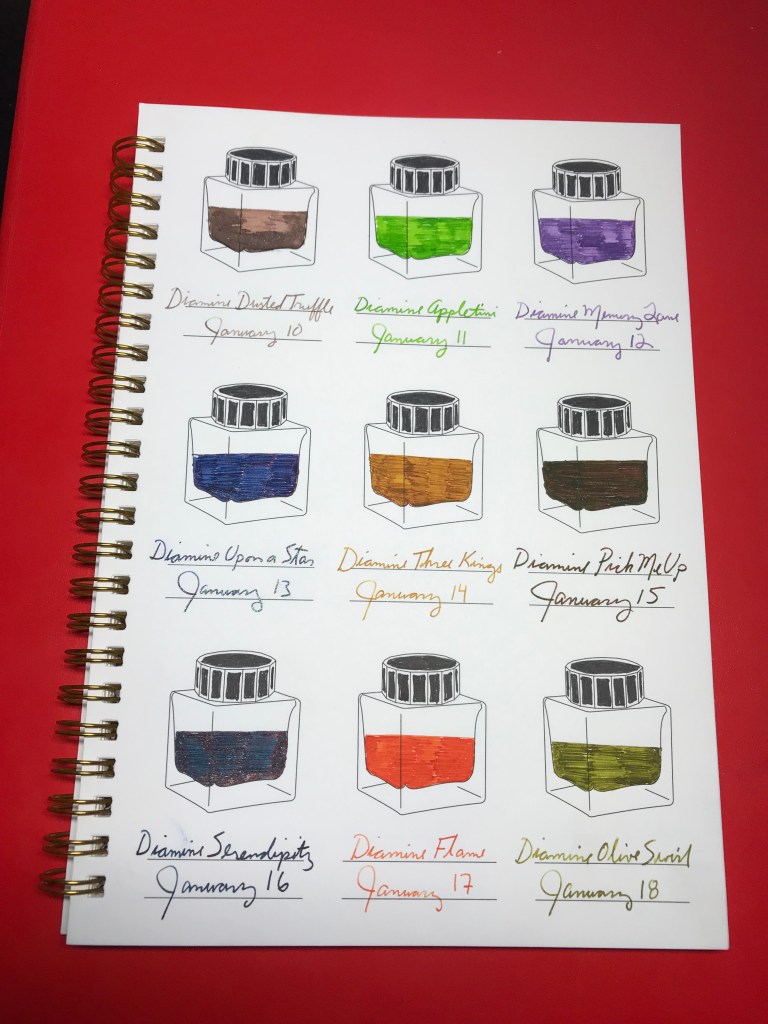 Diamine Dusted Truffle
January 10
Diamine Appletini
January 11
Diamine Memory Lane
January 12
Diamine Upon a Star
January 13
Diamine Three Kings
January 14
Diamine Pick Me Up
January 15
Diamine Serendipity
January 16
Diamine Flame
January 17
Diamine Olive Swirl
January 18